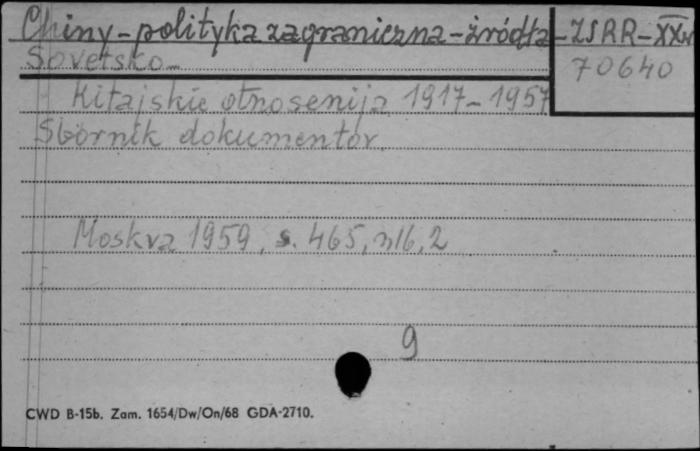 Chiny - polityka zagraniczna - źródła - ZSRR - XX w
Sovetsko-
70640
Kitajskie otnosenija 1917-1957
Sbornik dokumentov.
Moskva 1959, s. 465, nlb, 2
9
CWD B-15b. Zam. 1654/Dw/On/68 GDA-2710.